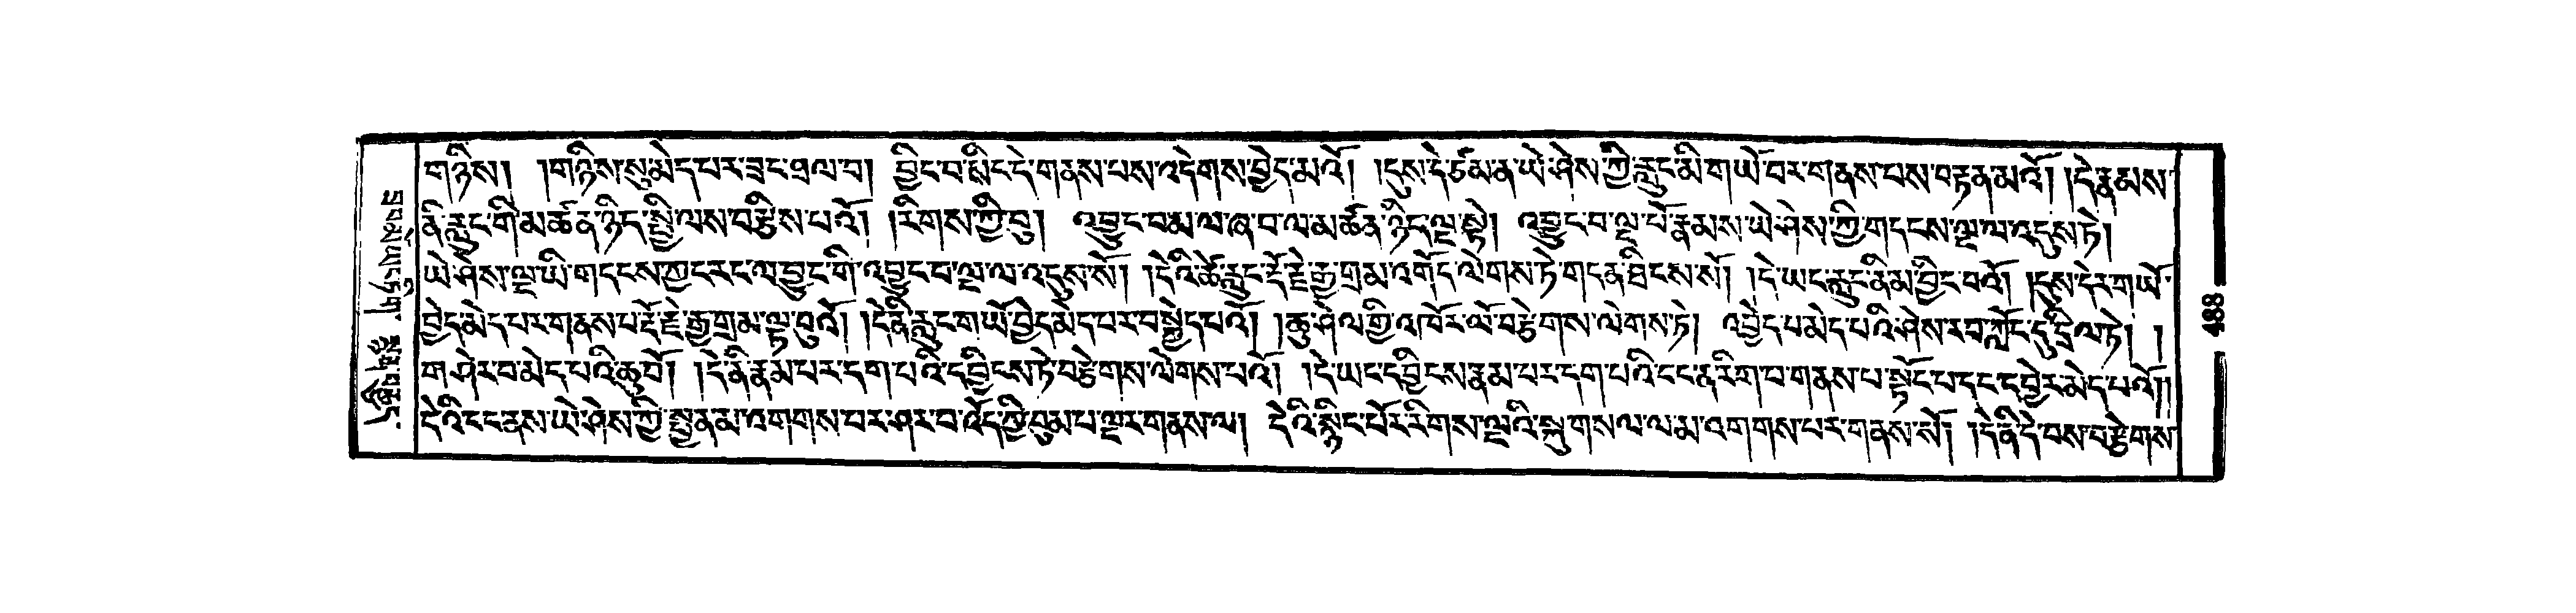 གཉིས། །གཉིས་སུ་མེད་པར་ཟང་ཐལ་བ། བྱིང་བ་སིང་དེ་གནས་པས་འདེགས་བྱེད་མའོ། །དུས་དེ་ཙམ་ན་ཡེ་ཤེས་ཀྱི་རླུང་མི་གཡོ་བར་གནས་པས་བརྟན་མའོ། །དེ་རྣམས་
ནི་རླུང་གི་མཚན་ཉིད་སྤྱི་ལས་བརྩིས་པའོ། །རིགས་ཀྱི་བུ། འབྱུང་བམ་ལ་ཞ་བ་ལ་མཚན་ཉིད་ལྔ་སྟེ། འབྱུང་བ་ལྔ་པོ་རྣམས་ཡེ་ཤེས་ཀྱི་གདངས་ལྔ་ལ་འདུས་ཏེ།
ཡེ་ཤེས་ལྔ་ཡི་གདངས་ཀྱང་རང་ལ་བྱུང་གི་འབྱུང་བ་ལྔ་ལ་འདུས་སོ། །དེའི་ཚེ་རླུང་རྡོ་རྗེ་རྒྱ་གྲམ་འགོད་ལེགས་ཏེ་གདན་ཐིངས་སོ། །དེ་ཡང་རླུང་ནི་མ་བྱིང་བའོ། །དུས་དེར་གཡོ་
བྱེད་མེད་པར་གནས་པ་རྡོ་རྗེ་རྒྱ་གྲམ་ལྟ་བུའོ། །དེ་ནི་རླུང་གཡོ་བྱེད་མེད་པར་བསྐྱེད་པའོ། །ཆུ་ཤེལ་གྱི་འཁོར་ལོ་བརྩེགས་ལེགས་ཏེ། འབྱེད་པ་མེད་པའི་ཤེས་རབ་ཀློང་དུ་དྲིལ་ཏེ། །
གཤེར་བ་མེད་པའི་ཆུ་བོ། །དེ་ནི་རྣམ་པར་དག་པའི་དབྱིངས་ཏེ་བརྩེགས་ལེགས་པའོ། །དེ་ཡང་དབྱིངས་རྣམ་པར་དག་པའི་ངང་ན་རིག་པ་གནས་པ་སྟོང་པ་དང་དབྱེར་མེད་པའོ། །
དེའི་ངང་ནས་ཡེ་ཤེས་ཀྱི་སྤྱན་མ་འགགས་པར་ཤར་བ་འོད་ཀྱི་བུམ་པ་ལྔར་གནས་ལ། དེའི་སྙིང་པོར་རིགས་ལྔའི་སྐུ་གསལ་ལ་མ་འགགས་པར་གནས་སོ། །དེ་ནི་དེ་བས་བརྩེགས་